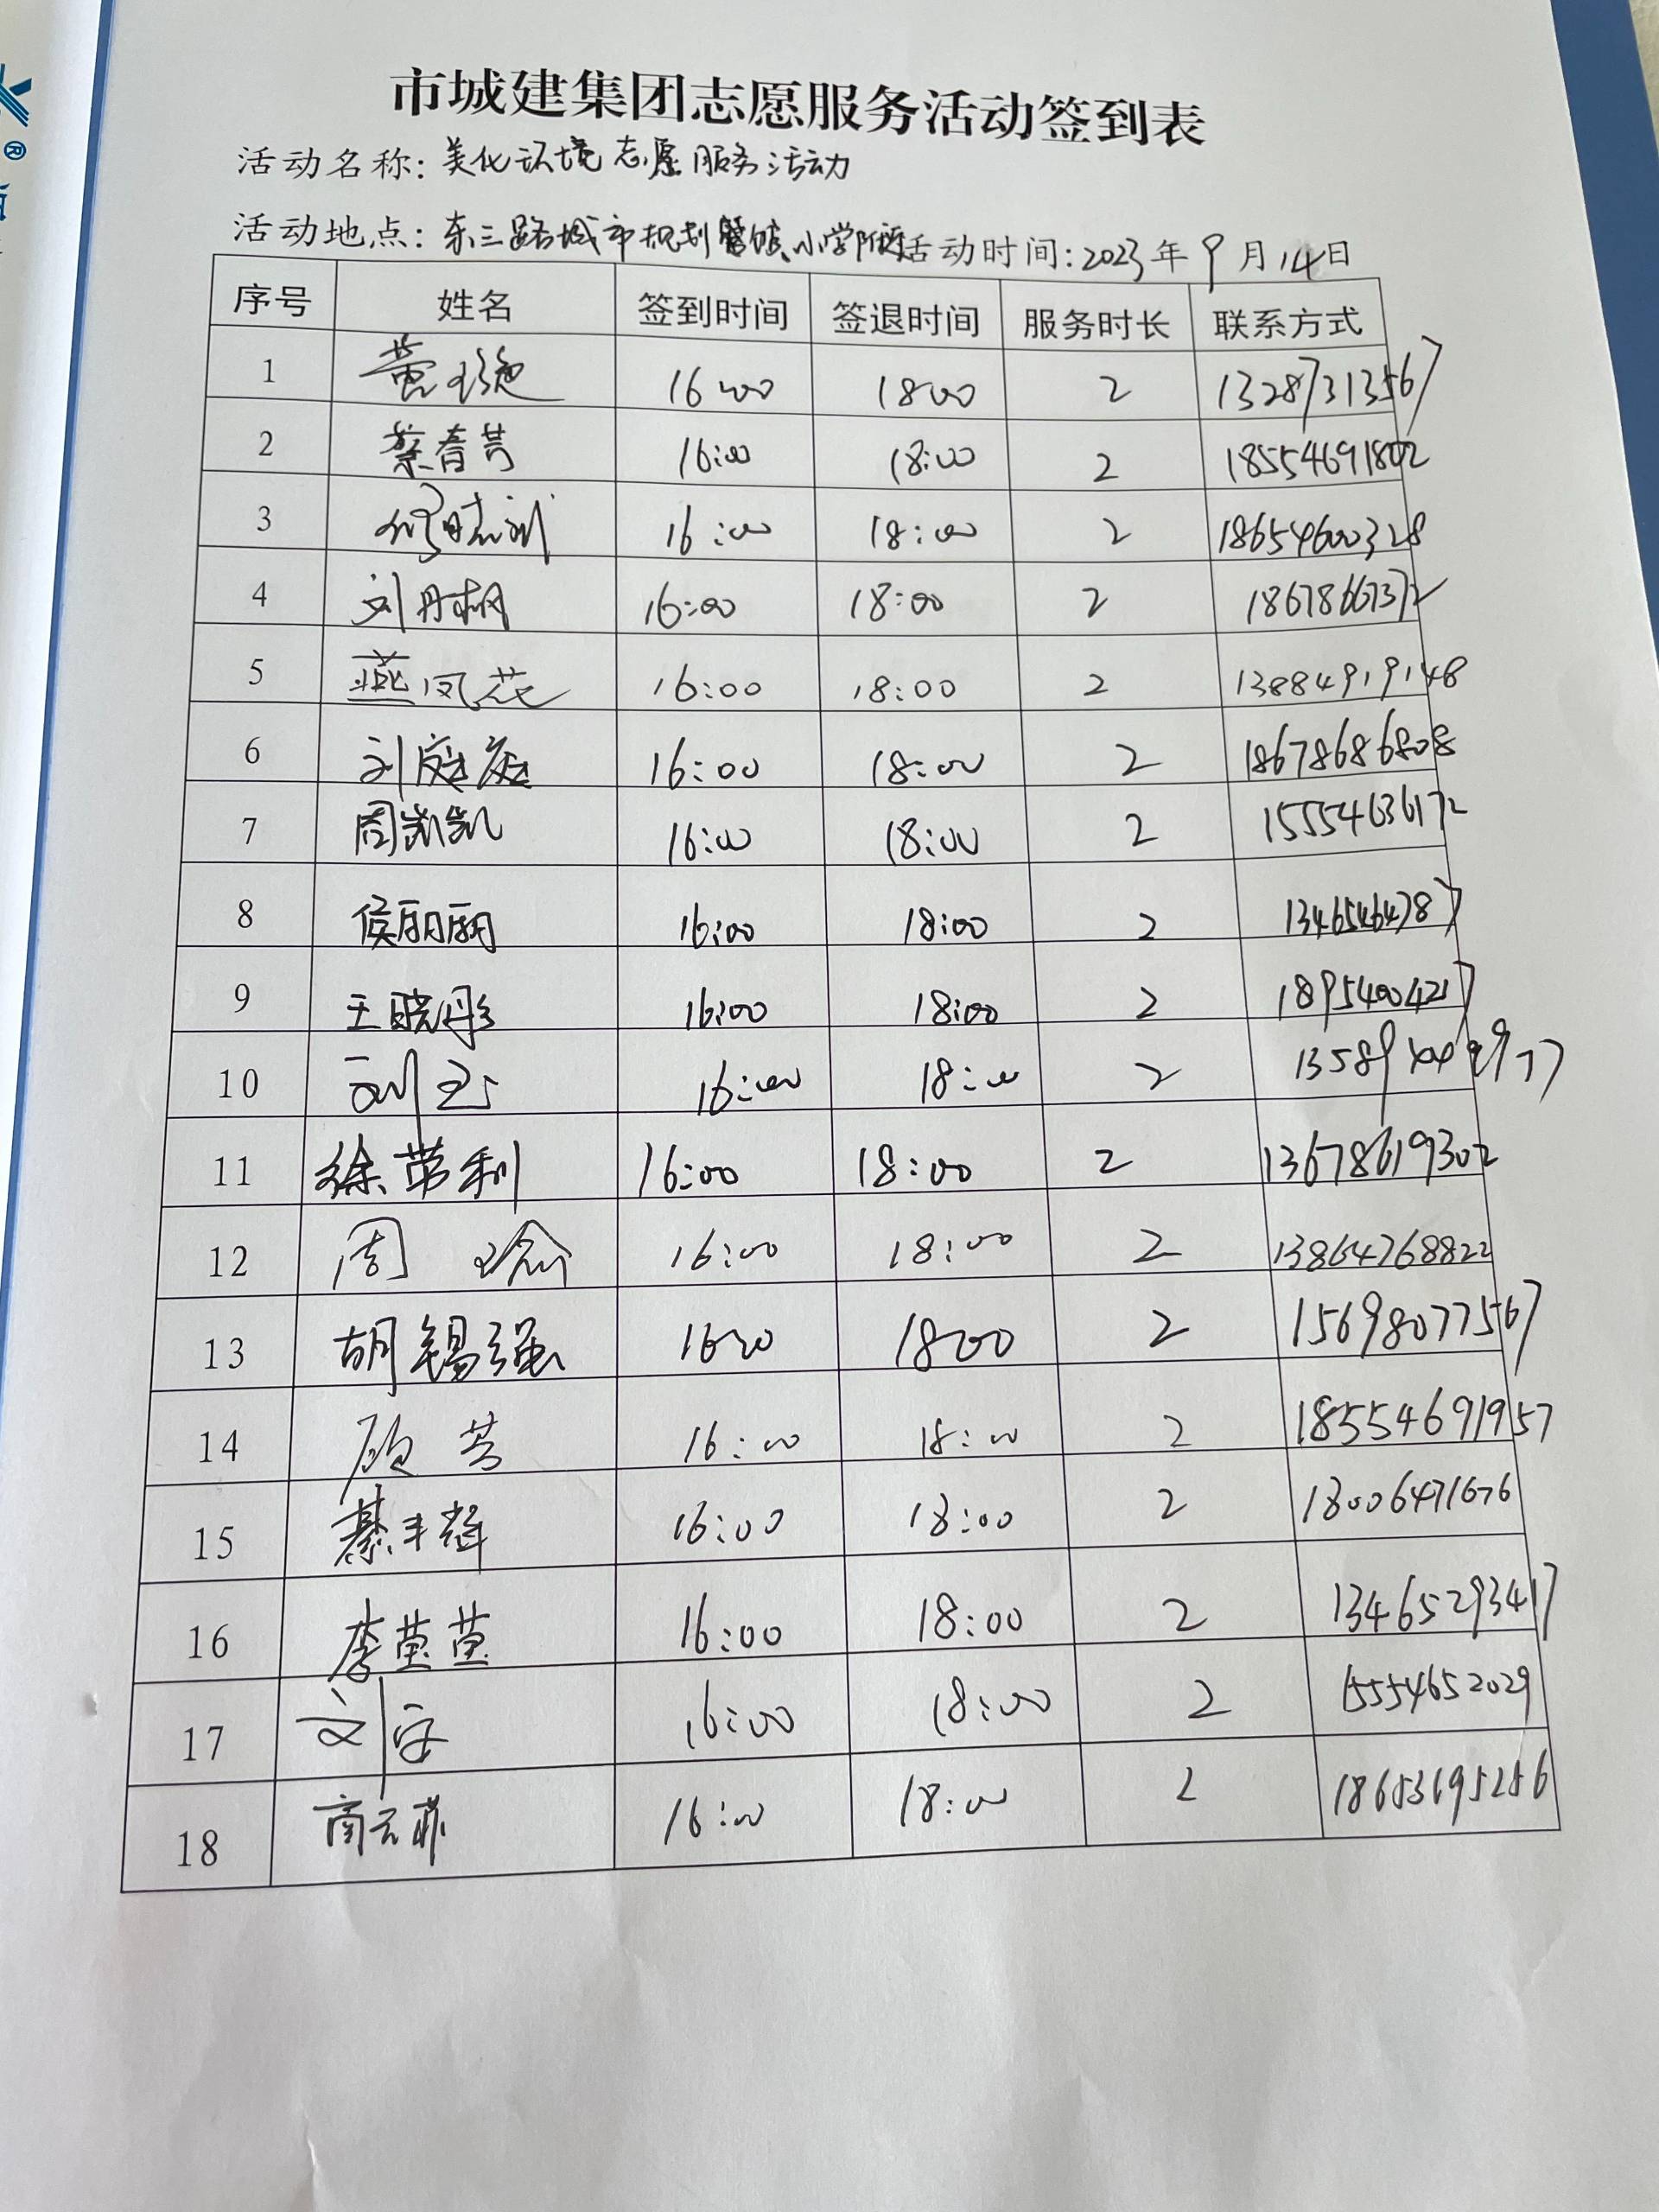 市城建集团志愿服务活动签到表
活动名称: 美化环境志愿服务活动
活动地点: 东三路城市规划馆、小学附近 活动时间: 2023年9月14日
序号 姓名 签到时间 签退时间 服务时长 联系方式
1 16:00 18:00 2 13287313567
2 蔡春芳 16:00 18:00 2 18554691802
3 16:00 18:00 2 18654600328
4 刘丹枫 16:00 18:00 2 18678667372
5 燕凤花 16:00 18:00 2 13884919148
6 刘庭庭 16:00 18:00 2 18678686808
7 周凯凯 16:00 18:00 2 15554636172
8 侯丽丽 16:00 18:00 2 13465464787
9 王晓彤 16:00 18:00 2 18954004217
10 刘云 16:00 18:00 2
11 徐荣利 16:00 18:00 2 13678619302
12 周瑜 16:00 18:00 2 13864768822
13 胡锡强 1600 1800 2 15698077567
14 顾芳 16:00 18:00 2 18554691957
15 綦丰辉 16:00 18:00 2 18006471676
16 李莹莹 16:00 18:00 2 13465293417
17 刘宇 16:00 18:00 2 15554652029
18 商云菲 16:00 18:00 2 18653695256